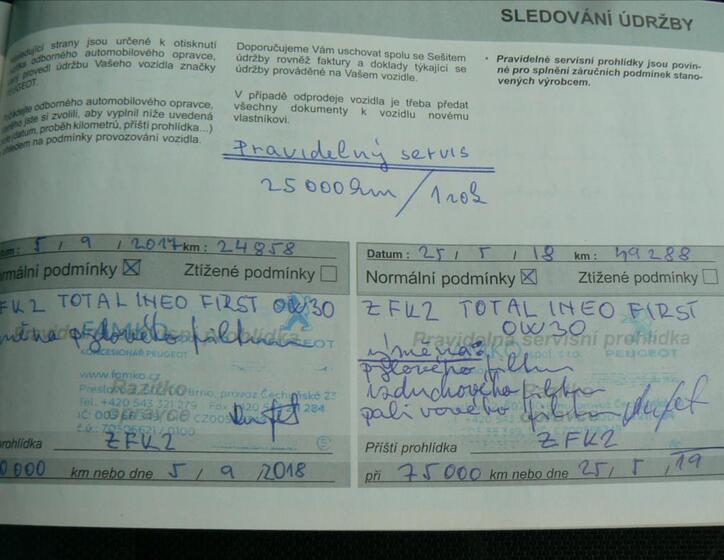 SLEDOVÁNÍ ÚDRŽBY
strany jsou určené k otisknutí
odborného automobilového opravce,
provedl údržbu Vašeho vozidla značky
odborného automobilového opravce,
jste si zvolili, aby vyplnil níže uvedená
(datum, proběh kilometrů, příští prohlídka...)
na podmínky provozování vozidla.
Doporučujeme Vám uschovat spolu se Sešitem
údržby rovněž faktury a doklady týkající se
údržby prováděné na Vašem vozidle.
V případě odprodeje vozidla je třeba předat
všechny dokumenty k vozidlu novému
vlastníkovi.
• Pravidelné servisní prohlídky jsou povin-
né pro splnění záručních podmínek stano-
vených výrobcem.
Pravidelný servis
25 000 km / 1 rok
5 / 9 / 2017 km : 24858
podmínky ☒ Ztížené podmínky ☐
ZFK2 TOTAL INEO FIRST 0W30
pylového filtru
FAMKO
prohlídka
CONCESIONÁŘ PEUGEOT
www.famko.cz
Brno, provoz Čechyňská
Razítko
Tel. +420 543 321 279 Fax +420
opravce
prohlídka ZFK2
km nebo dne 5 / 9 / 2018
Datum : 25 / 5 / 18 km : 49288
Normální podmínky ☒ Ztížené podmínky ☐
ZFK2 TOTAL INEO FIRST
0W30
Pravidelná servisní prohlídka
výměna:
spol. s r.o. PEUGEOT
pylového filtru
vzduchového filtru
palivového filtru
Příští prohlídka ZFK2
při 75000 km nebo dne 25 / 5 / 19